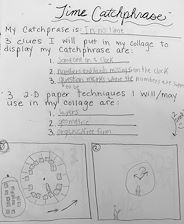 "Time Catchphrase"
My Catchphrase is: In no time
3 clues I will put in my collage to
display my catchphrase are:
1. Someone on a clock
2. numbers and hands missing on the clock
3. question marks where the numbers are supposed
to be
3 2-D paper techniques I will/may
use in my collage are:
1. layers
2. geometric
3. organic/free form